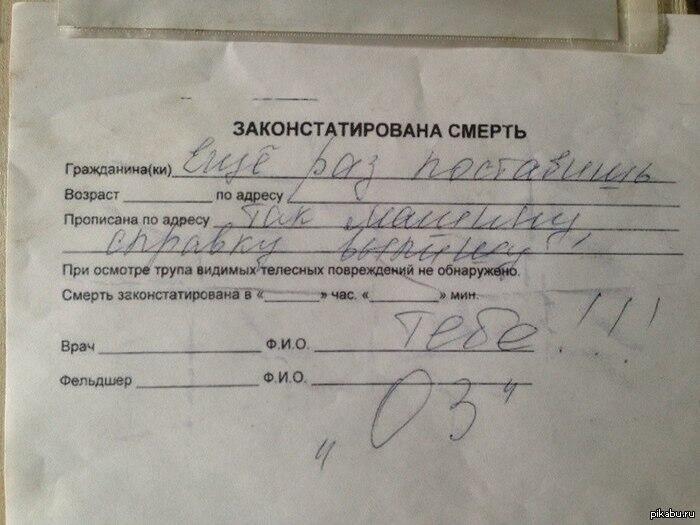 ЗАКОНСТАТИРОВАНА СМЕРТЬ
Гражданина(ки) ещё раз поставишь
Возраст ________ по адресу ________
Прописана по адресу так машину,
справку выпишу
При осмотре трупа видимых телесных повреждений не обнаружено.
Смерть законстатирована в «______» час. «______» мин.
тебе!!!
Врач ________ Ф.И.О. ________
Фельдшер ________ Ф.И.О. ________
"03"
pikabu.ru